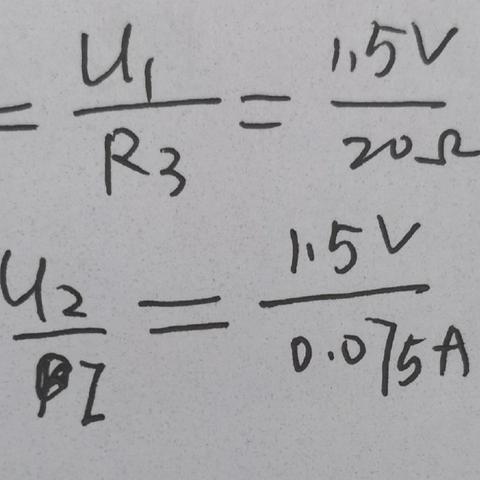 = U₁/R₃ = 1.5V/20Ω
U₂/I = 1.5V/0.075A